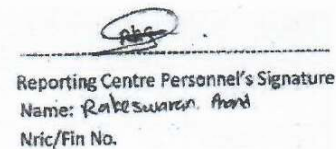 Reporting Centre Personnel's Signature
Name: Rakeswaran Anand
Nric/Fin No.